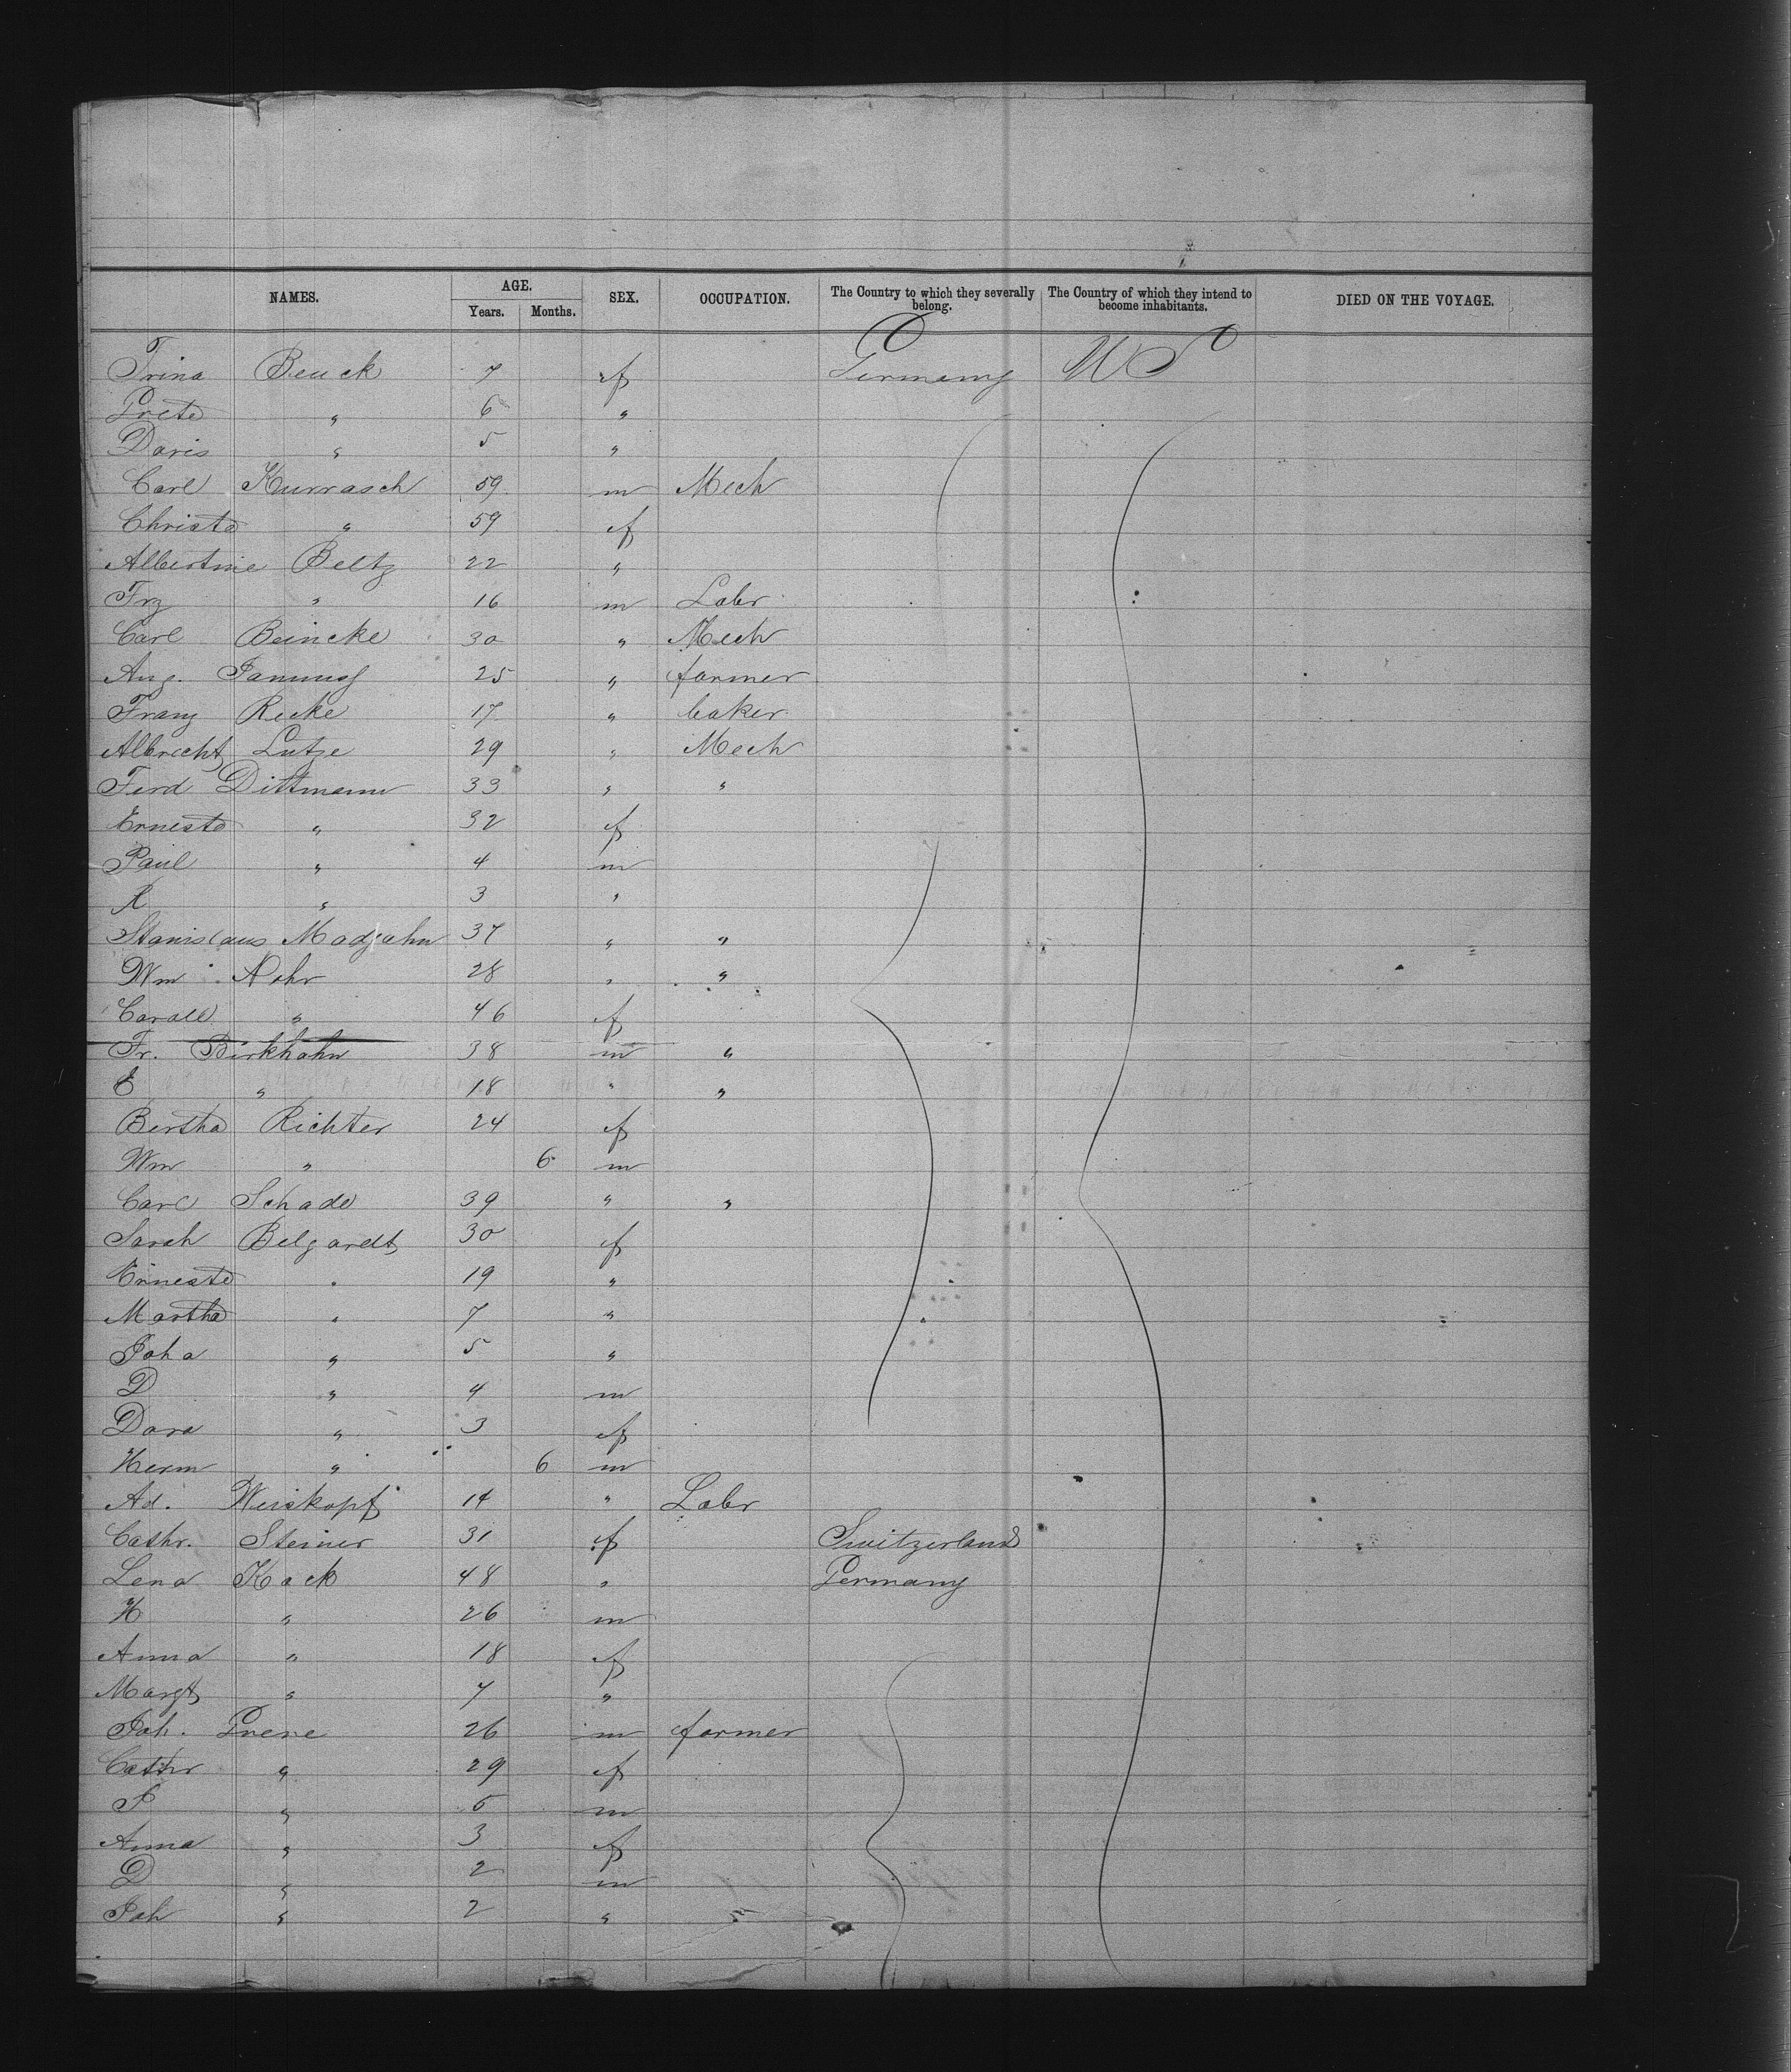 NAMES. AGE. SEX. OCCUPATION. The Country to which they severally belong. The Country of which they intend to become inhabitants. DIED ON THE VOYAGE.
Years. Months.
Trina Beuck 7 f Germany U S
Grete " 6 "
Doris " 5 "
Carl Kurrasch 59 m Mech
Christe " 59 f
Albertine Beltz 22 "
Frz " 16 m Labr
Carl Beincke 30 " Mech
Aug. 25 " farmer
Franz Recke 17 " baker
Albrecht Lutze 29 " Mech
Ferd Dittmann 33 " "
Erneste " 32 f
Paul " 4 m
R " 3 "
Stanislaus Madjahn 37 " "
Wm Nohr 28 " "
" 46 f
Fr. Birkhahn 38 m "
E " 18 " "
Bertha Richter 24 f
Wm " 6 m
Carl Schade 39 " "
Sarah Belgardt 30 f
Erneste " 19 "
Martha " 7 "
Joha " 5 "
D " 4 m
Dora " 3 f
Herm " 6 m
Ad. Weiskopf 14 " Labr
Cathr. Steiner 31 f Switzerland
Lena Kock 48 " Germany
H " 26 m
Anna " 18 f
Margt " 7 "
Joh. 26 m farmer
Cathr " 29 f
" 5 m
Anna " 3 f
D " 2 m
Joh " 2 "